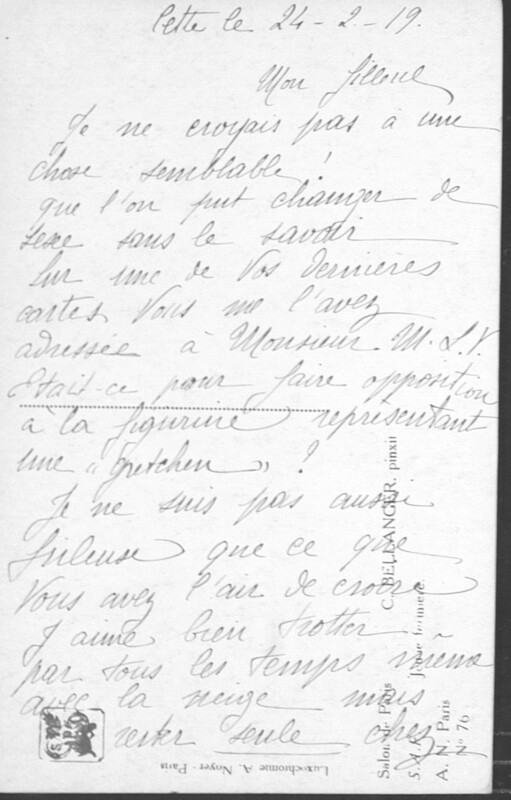 Cette le 24-2-19.
Mon filleul
Je ne croyais pas à une
chose semblable !
que l'on put changer de
sexe sans le savoir
Sur une de Vos dernières
cartes Vous me l'avez
adressée à Monsieur M. L.V.
Etait-ce pour faire opposition
à la figurine représentant
une " Gretchen " ?
Je ne suis pas aussi
frileuse que ce que
Vous avez l'air de croire
J'aime bien trotter
par tous les temps même
avec la neige mais
rester seule chez
Luxochromie A. Noyer - Paris
Salon de Paris C. BELLANGER, pinxit
Jeune fermière.
A. N. Paris
N° 76